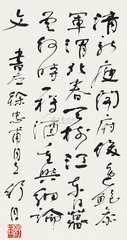 清新庾開府俊逸鮑參
軍渭北春天樹江東日暮
雲何時一樽酒重與細論
文